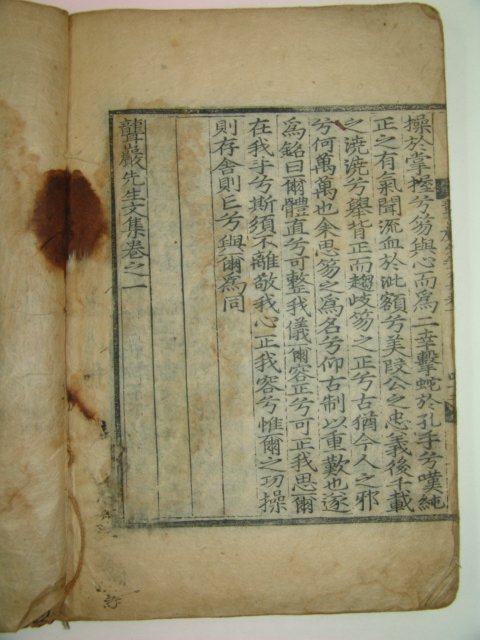 操於掌握兮笏與心而爲一幸擊蛇於孔手兮嘆純
正之有氣聞流血於泚額兮美陵公之忠義後千載
之澆漓兮舉背正而趨歧笏之正兮古猶今人之邪
兮何萬萬也余思笏之爲名兮仰古制以重歎也遂
爲銘曰爾體直兮可整我儀爾容正兮可正我思爾
在我手兮斯須不離敬我心正我容兮惟爾之功操
則存舍則亡兮與爾爲同
聾巖先生文集卷之一